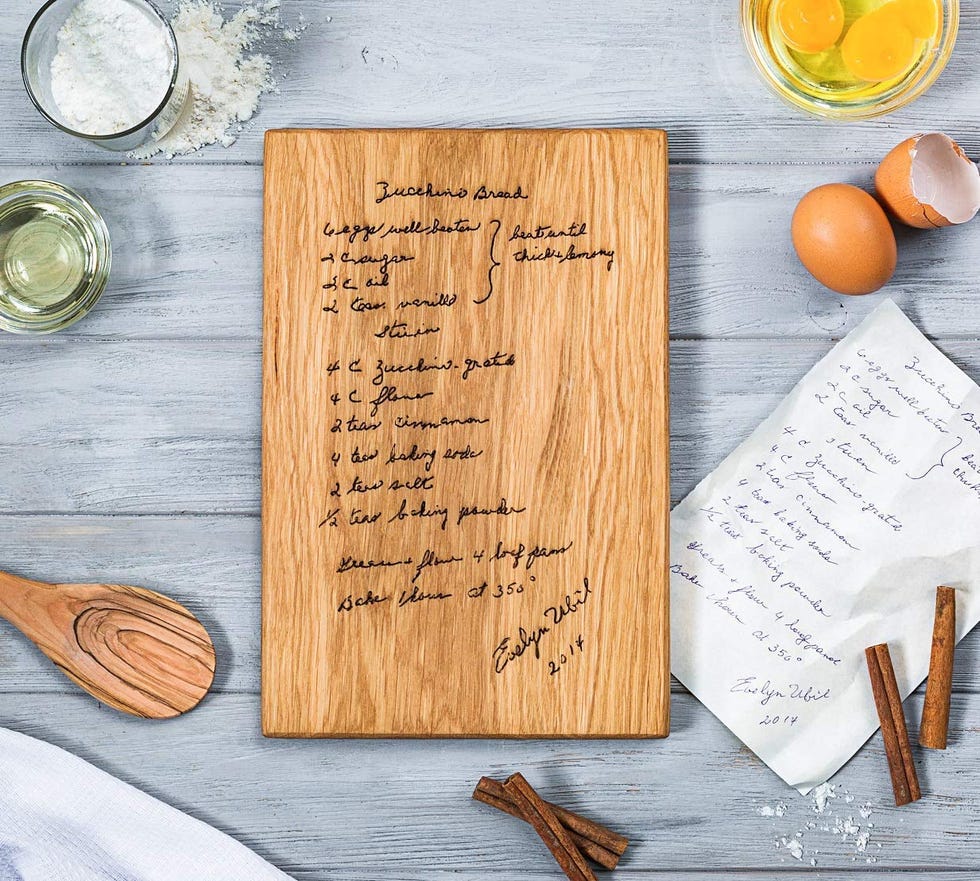 Zucchini Bread
6 eggs well beaten
2 C sugar
2 C oil
2 teas. vanilla
beat until
thick & lemony
Stir in
4 C Zucchini - grated
4 C flour
2 teas cinnamon
4 teas baking soda
2 teas salt
1/2 teas baking powder
Grease + flour 4 loaf pans
Bake 1 hour at 350°
Evelyn Ubil
2014
Zucchini
6 eggs well beaten
2 C sugar
2 C oil
2 teas vanilla
Stir in
4 C Zucchini - grated
4 C flour
2 teas cinnamon
4 teas baking soda
2 teas salt
1/2 teas baking powder
Grease + flour 4 loaf pans
Bake 1 hour at 350°
Evelyn Ubil
2014